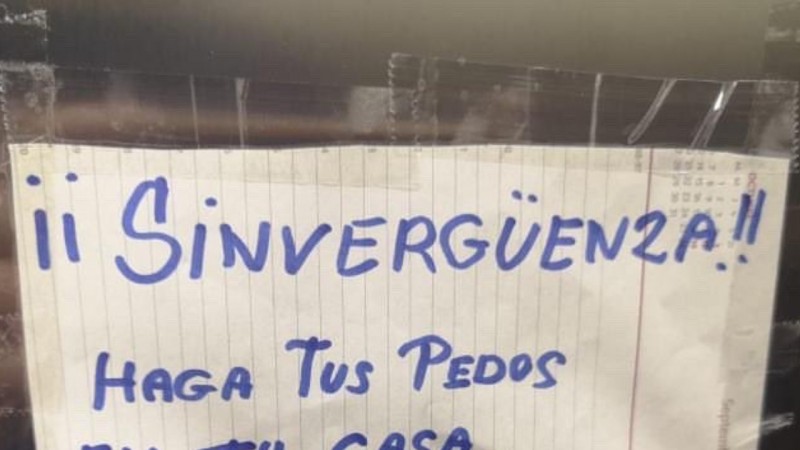 ¡¡ SiNVERGÜENZA!!
HAGA TUS PEDOS
EN TU CASA